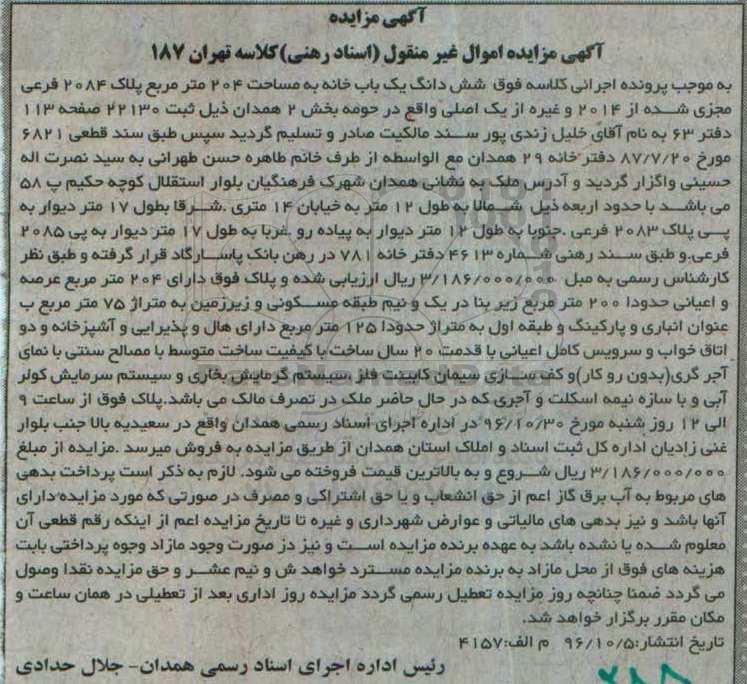 آگهی مزایده
آگهی مزایده اموال غیر منقول (اسناد رهنی) کلاسه تهران ۱۸۷
به موجب پرونده اجرائی کلاسه فوق شش دانگ یک باب خانه به مساحت ۲۰۴ متر مربع پلاک ۲۰۸۴ فرعی
مجزی شده از ۲۰۱۴ و غیره از یک اصلی واقع در حومه بخش ۲ همدان ذیل ثبت ۲۲۱۳۰ صفحه ۱۱۳
دفتر ۶۳ به نام آقای خلیل زندی پور سند مالکیت صادر و تسلیم گردید سپس طبق سند قطعی ۶۸۲۱
مورخ ۸۷/۷/۲۰ دفتر خانه ۲۹ همدان مع الواسطه از طرف خانم طاهره حسن طهرانی به سید نصرت اله
حسینی واگزار گردید و آدرس ملک به نشانی همدان شهرک فرهنگیان بلوار استقلال کوچه حکیم پ ۵۸
می باشد با حدود اربعه ذیل شمالا به طول ۱۲ متر به خیابان ۱۴ متری .شرقا بطول ۱۷ متر دیوار به
پی پلاک ۲۰۸۳ فرعی .جنوبا به طول ۱۲ متر دیوار به پیاده رو .غربا به طول ۱۷ متر دیوار به پی ۲۰۸۵
فرعی.و طبق سند رهنی شماره ۴۶۱۳ دفتر خانه ۷۸۱ در رهن بانک پاسارگاد قرار گرفته و طبق نظر
کارشناس رسمی به مبل ۳/۱۸۶/۰۰۰/۰۰۰ ریال ارزیابی شده و پلاک فوق دارای ۲۰۴ متر مربع عرصه
و اعیانی حدودا ۲۰۰ متر مربع زیر بنا در یک و نیم طبقه مسکونی و زیرزمین به متراژ ۷۵ متر مربع ب
عنوان انباری و پارکینگ و طبقه اول به متراژ حدودا ۱۲۵ متر مربع دارای هال و پذیرایی و آشپزخانه و دو
اتاق خواب و سرویس کامل اعیانی با قدمت ۲۰ سال ساخت با کیفیت ساخت متوسط با مصالح سنتی با نمای
آجر گری(بدون رو کار)و کف سازی سیمان کابینت فلز .سیستم گرمایش بخاری و سیستم سرمایش کولر
آبی و با سازه نیمه اسکلت و آجری که در حال حاضر ملک در تصرف مالک می باشد.پلاک فوق از ساعت ۹
الی ۱۲ روز شنبه مورخ ۹۶/۱۰/۳۰ در اداره اجرای اسناد رسمی همدان واقع در سعیدیه بالا جنب بلوار
غنی زادیان اداره کل ثبت اسناد و املاک استان همدان از طریق مزایده به فروش میرسد .مزایده از مبلغ
۳/۱۸۶/۰۰۰/۰۰۰ ریال شروع و به بالاترین قیمت فروخته می شود. لازم به ذکر است پرداخت بدهی
های مربوط به آب برق گاز اعم از حق انشعاب و یا حق اشتراکی و مصرف در صورتی که مورد مزایده دارای
آنها باشد و نیز بدهی های مالیاتی و عوارض شهرداری و غیره تا تاریخ مزایده اعم از اینکه رقم قطعی آن
معلوم شده یا نشده باشد به عهده برنده مزایده است و نیز در صورت وجود مازاد وجوه پرداختی بابت
هزینه های فوق از محل مازاد به برنده مزایده مسترد خواهد ش و نیم عشر و حق مزایده نقدا وصول
می گردد ضمنا چنانچه روز مزایده تعطیل رسمی گردد مزایده روز اداری بعد از تعطیلی در همان ساعت و
مکان مقرر برگزار خواهد شد.
تاریخ انتشار:۹۶/۱۰/۵ م الف:۴۱۵۷
رئیس اداره اجرای اسناد رسمی همدان- جلال حدادی